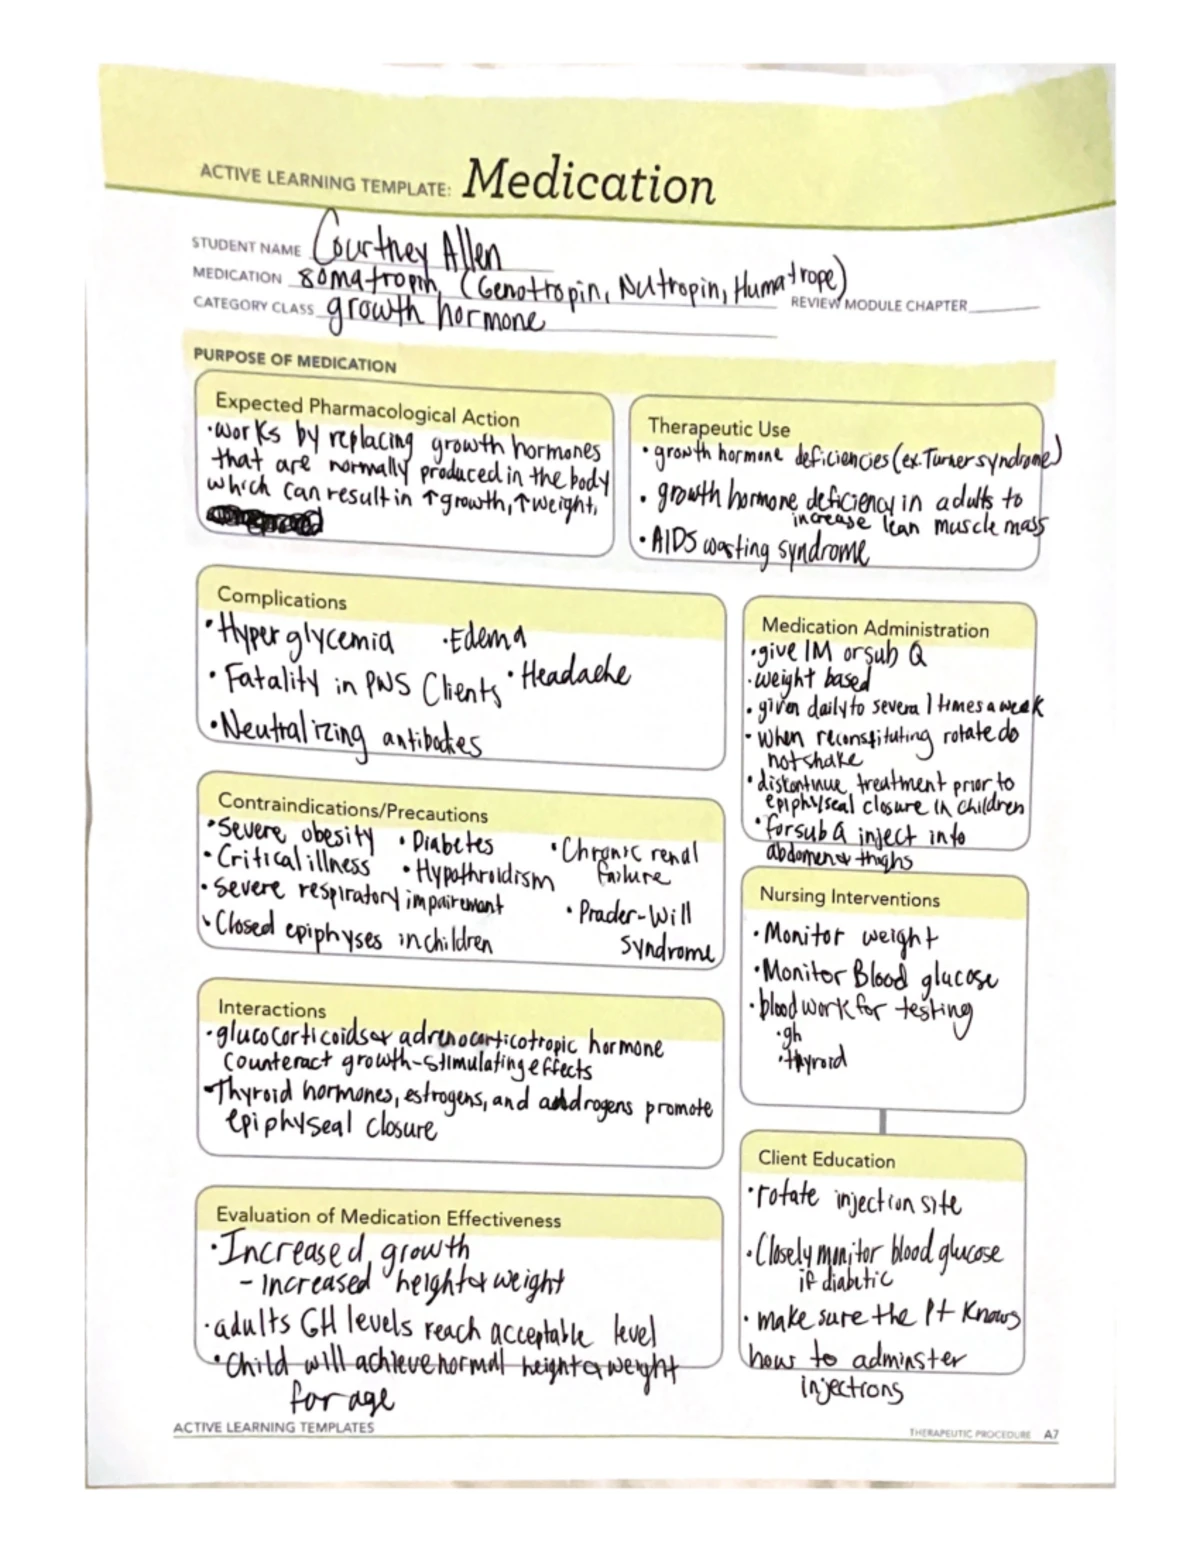 ACTIVE LEARNING TEMPLATE: Medication
STUDENT NAME Courtney Allen
MEDICATION somatropin (Genotropin, Nutropin, Humatrope)
REVIEW MODULE CHAPTER
CATEGORY CLASS growth hormone
PURPOSE OF MEDICATION
Expected Pharmacological Action
•works by replacing growth hormones
that are normally produced in the body
which can result in ↑growth, ↑weight,
Therapeutic Use
• growth hormone deficiencies (ex. Turner syndrome)
• growth hormone deficiency in adults to
increase lean muscle mass
• AIDS wasting syndrome
Complications
•Hyperglycemia •Edema
• Fatality in PWS Clients •Headache
•Neutralizing antibodies
Medication Administration
•give IM or sub Q
•weight based
• given daily to several times a week
• when reconstituting rotate do
not shake
• discontinue treatment prior to
epiphyseal closure in children
• for sub Q inject into
abdomen & thighs
Contraindications/Precautions
•Severe obesity • Diabetes •Chronic renal
failure
• Critical illness • Hypothroidism
• severe respiratory impairement
• Prader-Will
Syndrome
• Closed epiphyses in children
Nursing Interventions
• Monitor weight
•Monitor Blood glucose
•blood work for testing
•gh
•thyroid
Interactions
•glucocorticoids & adrenocorticotropic hormone
counteract growth-stimulating effects
•Thyroid hormones, estrogens, and addrogens promote
epiphyseal closure
Client Education
•rotate injection site
•Closely monitor blood glucose
if diabetic
• make sure the Pt knows
how to adminster
injections
Evaluation of Medication Effectiveness
•Increased growth
- increased height & weight
•adults GH levels reach acceptable level
•Child will achieve normal height & weight
for age
ACTIVE LEARNING TEMPLATES
THERAPEUTIC PROCEDURE A7